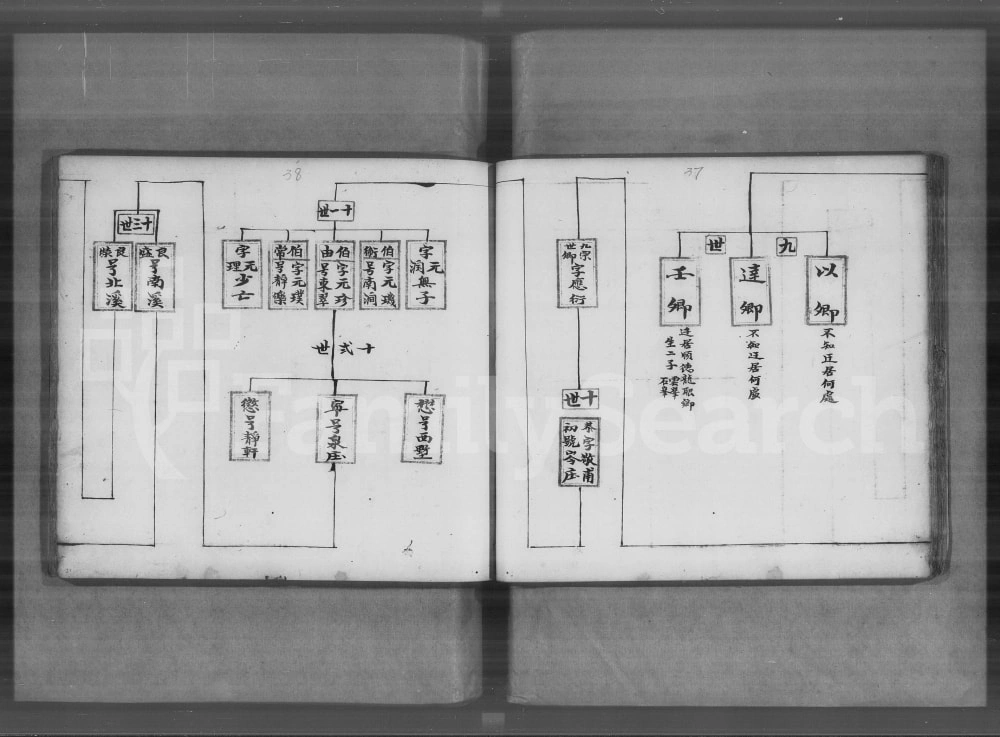 37
九
世
以卿
不知迁居何處
達卿
不知迁居何處
壬卿
迁居順德龍眼鄉
生二子
雲翠
石翠
九世
宗卿
字應衍
十世
字敬甫
初號岑庄
38
十一世
字元潤無子
伯衡
字元
号南澗
伯由
字元珍
号東翠
伯常
字元璞
号靜樂
字元理少亡
十弍世
懋号西墅
寧号泉庄
懲号靜軒
十三世
良盛号南溪
良柴号北溪
FamilySearch